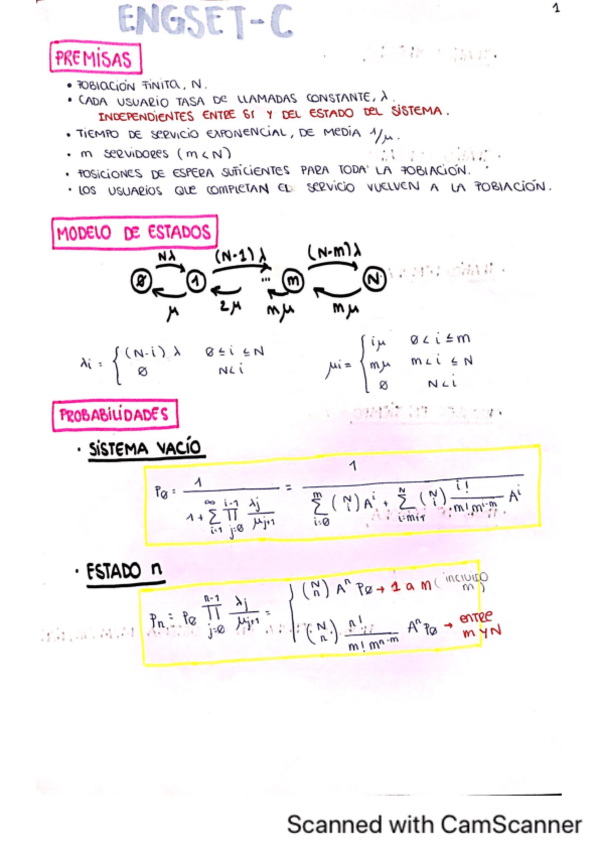 ENGSET-C
1
PREMISAS
• POBLACIÓN FINITA, N.
• CADA USUARIO TASA DE LLAMADAS CONSTANTE, λ.
INDEPENDIENTES ENTRE SÍ Y DEL ESTADO DEL SISTEMA.
• TIEMPO DE SERVICIO EXPONENCIAL, DE MEDIA 1/μ.
• m SERVIDORES (m < N)
• POSICIONES DE ESPERA SUFICIENTES PARA TODA LA POBLACIÓN.
• LOS USUARIOS QUE COMPLETAN EL SERVICIO VUELVEN A LA POBLACIÓN.
MODELO DE ESTADOS
Nλ (N-1)λ (N-m)λ
Ø 1 ... m N
μ 2μ mμ mμ
λi = { (N-i) λ 0 ≤ i ≤ N
Ø N < i
μi = { iμ 0 < i ≤ m
mμ m < i ≤ N
Ø N < i
PROBABILIDADES
• SISTEMA VACÍO
PØ = 1 / (1 + ∑_{i=1}^{∞} ∏_{j=0}^{i-1} λj/μj+1) = 1 / (∑_{i=0}^{m} (N i) A^i + ∑_{i=m+1}^{N} (N i) i!/(m! m^{i-m}) A^i)
• ESTADO n
Pn = PØ ∏_{j=0}^{n-1} λj/μj+1 = { (N n) A^n PØ → 1 a m (incluido m)
(N n) n!/(m! m^{n-m}) A^n PØ → entre m y N
Scanned with CamScanner